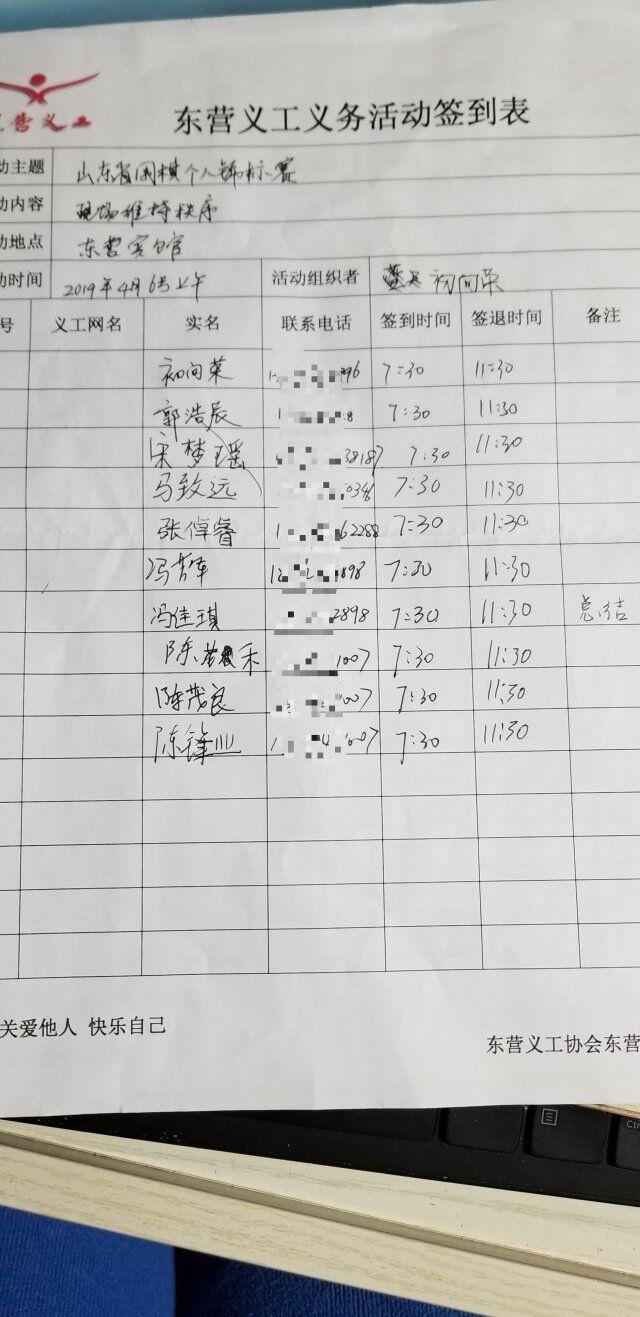 东营义工
东营义工义务活动签到表
动主题 山东省围棋个人锦标赛
动内容 现场维持秩序
动地点 东营宾馆
动时间 2019年4月6号上午 活动组织者 初向荣
号 义工网名 实名 联系电话 签到时间 签退时间 备注
初向荣 96 7:30 11:30
郭浩辰 8 7:30 11:30
宋梦瑶 38187 7:30 11:30
马致远 0348 7:30 11:30
张倬睿 62288 7:30 11:30
冯 898 7:30 11:30
冯佳琪 2898 7:30 11:30 总结
陈 禾 1007 7:30 11:30
陈茂良 007 7:30 11:30
陈锋业 007 7:30 11:30
关爱他人 快乐自己
东营义工协会东营
Ctr